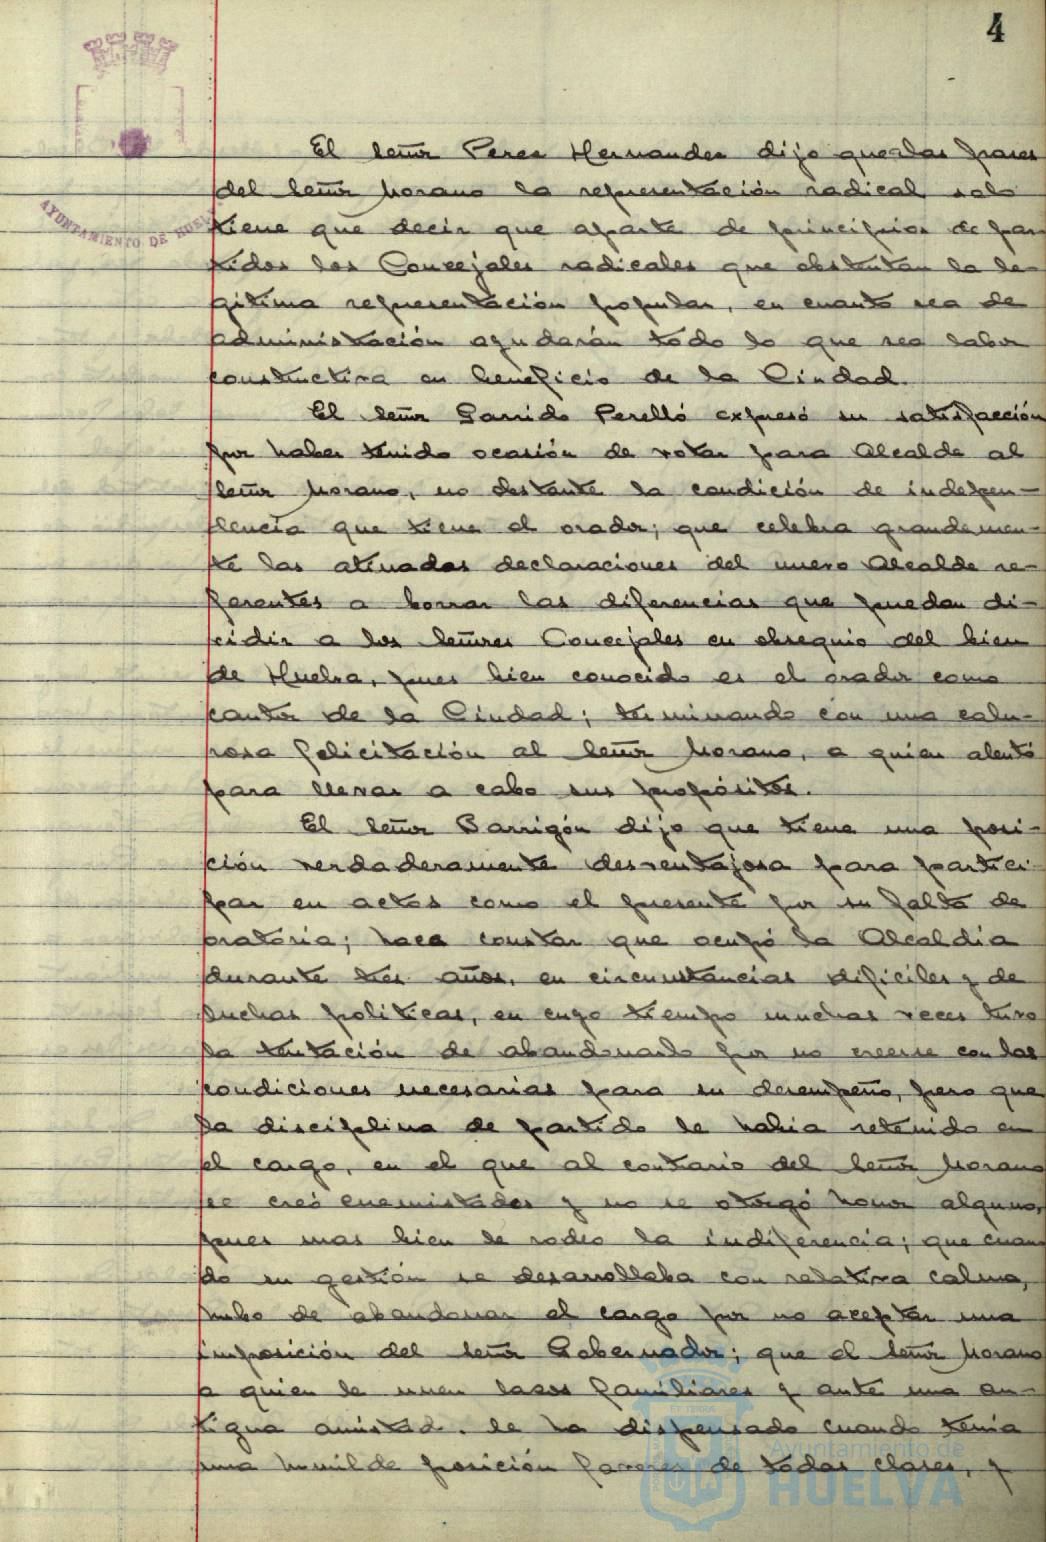 4
AYUNTAMIENTO DE HUELVA
El Señor Perez Hernandez dijo que a las frases
del Señor Morano la representación radical solo
tiene que decir que aparte de principios de par
tidos los Concejales radicales que obstentan la le-
gitima representación popular, en cuanto sea de
administración ayudarán todo lo que sea labor
constructiva en beneficio de la Ciudad.
El Señor Garrido Perelló expresó su satisfacción
por haber tenido ocasión de votar para Alcalde al
Señor Morano, no obstante la condición de indepen-
dencia que tiene el orador; que celebra grandemen-
te las atinadas declaraciones del nuevo Alcalde re-
ferentes a borrar las diferencias que puedan di-
vidir a los Señores Concejales en obsequio del bien
de Huelva, pues bien conocido es el orador como
cantor de la Ciudad; terminando con una calu-
rosa felicitación al Señor Morano, a quien alentó
para llevar a cabo sus propósitos.
El Señor Barrigón dijo que tiene una posi-
ción verdaderamente desventajosa para partici-
par en actos como el presente por su falta de
oratoria; hace constar que ocupó la Alcaldia
durante tres años, en circunstancias dificiles y de
luchas politicas, en cuyo tiempo muchas veces tuvo
la tentación de abandonarlo por no creerse con las
condiciones necesarias para su desempeño, pero que
la disciplina de partido le habia retenido en
el cargo, en el que al contrario del Señor Morano
se creó enemistades y no se otorgó honor alguno,
pues mas bien le rodeo la indiferencia; que cuan
do su gestión se desarrollaba con relativa calma,
hubo de abandonar el cargo por no aceptar una
imposición del Señor Gobernador; que el Señor Morano
a quien le unen lazos familiares y ante una an-
tigua amistad, le ha dispensado cuando tenia
una humilde posición favores de todas clases, y
Ayuntamiento de
HUELVA